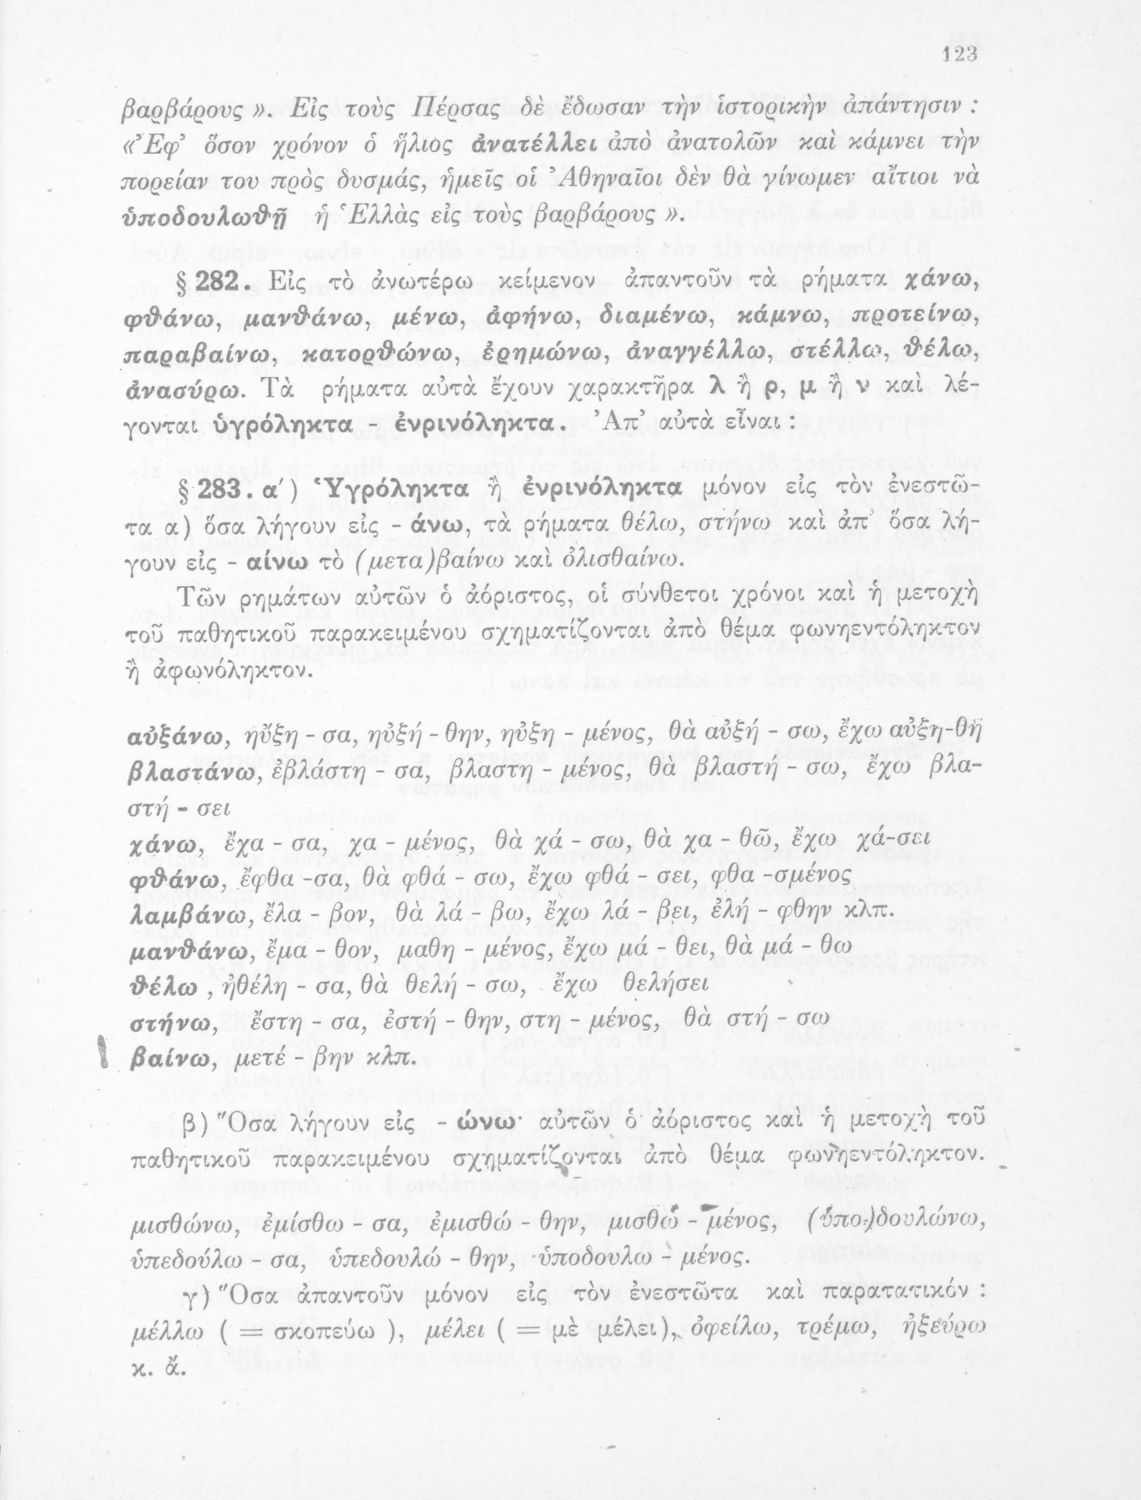 123
βαρβάρους ». Εἰς τοὺς Πέρσας δὲ ἔδωσαν τὴν ἱστορικὴν ἀπάντησιν :
«Ἐφ’ ὅσον χρόνον ὁ ἥλιος ἀνατέλλει ἀπὸ ἀνατολῶν καὶ κάμνει τὴν
πορείαν του πρὸς δυσμάς, ἡμεῖς οἱ Ἀθηναῖοι δὲν θὰ γίνωμεν αἴτιοι νὰ
ὑποδουλωθῇ ἡ Ἑλλὰς εἰς τοὺς βαρβάρους ».
§ 282. Εἰς τὸ ἀνωτέρω κείμενον ἀπαντοῦν τὰ ρήματα χάνω,
φθάνω, μανθάνω, μένω, ἀφήνω, διαμένω, κάμνω, προτείνω,
παραβαίνω, κατορθώνω, ἐρημώνω, ἀναγγέλλω, στέλλω, θέλω,
ἀνασύρω. Τὰ ρήματα αὐτὰ ἔχουν χαρακτῆρα λ ἢ ρ, μ ἢ ν καὶ λέ-
γονται ὑγρόληκτα - ἐνρινόληκτα. Ἀπ’ αὐτὰ εἶναι :
§ 283. α′) Ὑγρόληκτα ἢ ἐνρινόληκτα μόνον εἰς τὸν ἐνεστῶ-
τα α) ὅσα λήγουν εἰς - άνω, τὰ ρήματα θέλω, στήνω καὶ ἀπ’ ὅσα λή-
γουν εἰς - αίνω τὸ (μετα)βαίνω καὶ ὀλισθαίνω.
Τῶν ρημάτων αὐτῶν ὁ ἀόριστος, οἱ σύνθετοι χρόνοι καὶ ἡ μετοχὴ
τοῦ παθητικοῦ παρακειμένου σχηματίζονται ἀπὸ θέμα φωνηεντόληκτον
ἢ ἀφωνόληκτον.
αὐξάνω, ηὔξη - σα, ηὐξή - θην, ηὐξη - μένος, θὰ αὐξή - σω, ἔχω αὐξη-θῆ
βλαστάνω, ἐβλάστη - σα, βλαστη - μένος, θὰ βλαστή - σω, ἔχω βλα-
στή - σει
χάνω, ἔχα - σα, χα - μένος, θὰ χά - σω, θὰ χα - θῶ, ἔχω χά-σει
φθάνω, ἔφθα -σα, θὰ φθά - σω, ἔχω φθά - σει, φθα -σμένος
λαμβάνω, ἔλα - βον, θὰ λά - βω, ἔχω λά - βει, ἐλή - φθην κλπ.
μανθάνω, ἔμα - θον, μαθη - μένος, ἔχω μά - θει, θὰ μά - θω
θέλω , ἠθέλη - σα, θὰ θελή - σω, ἔχω θελήσει
στήνω, ἔστη - σα, ἐστή - θην, στη - μένος, θὰ στή - σω
βαίνω, μετέ - βην κλπ.
β) Ὅσα λήγουν εἰς - ώνω· αὐτῶν ὁ ἀόριστος καὶ ἡ μετοχὴ τοῦ
παθητικοῦ παρακειμένου σχηματίζονται ἀπὸ θέμα φωνηεντόληκτον.
μισθώνω, ἐμίσθω - σα, ἐμισθώ - θην, μισθω - μένος, (ὑπο-)δουλώνω,
ὑπεδούλω - σα, ὑπεδουλώ - θην, ὑποδουλω - μένος.
γ) Ὅσα ἀπαντοῦν μόνον εἰς τὸν ἐνεστῶτα καὶ παρατατικόν :
μέλλω ( = σκοπεύω ), μέλει ( = μὲ μέλει), ὀφείλω, τρέμω, ἠξεύρω
κ. ἄ.